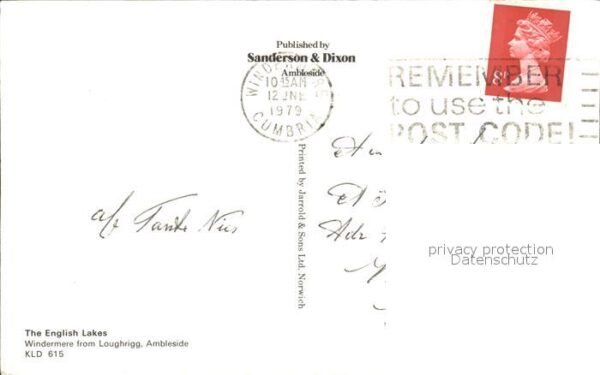 Published by
Sanderson & Dixon
Ambleside
WINDERMERE
10 AM
12 JNE
1979
CUMBRIA
8P
REMEMBER
to use the
POST CODE!
Printed by Jarrold & Sons Ltd. Norwich
af Tante
privacy protection
Datenschutz
The English Lakes
Windermere from Loughrigg, Ambleside
KLD 615